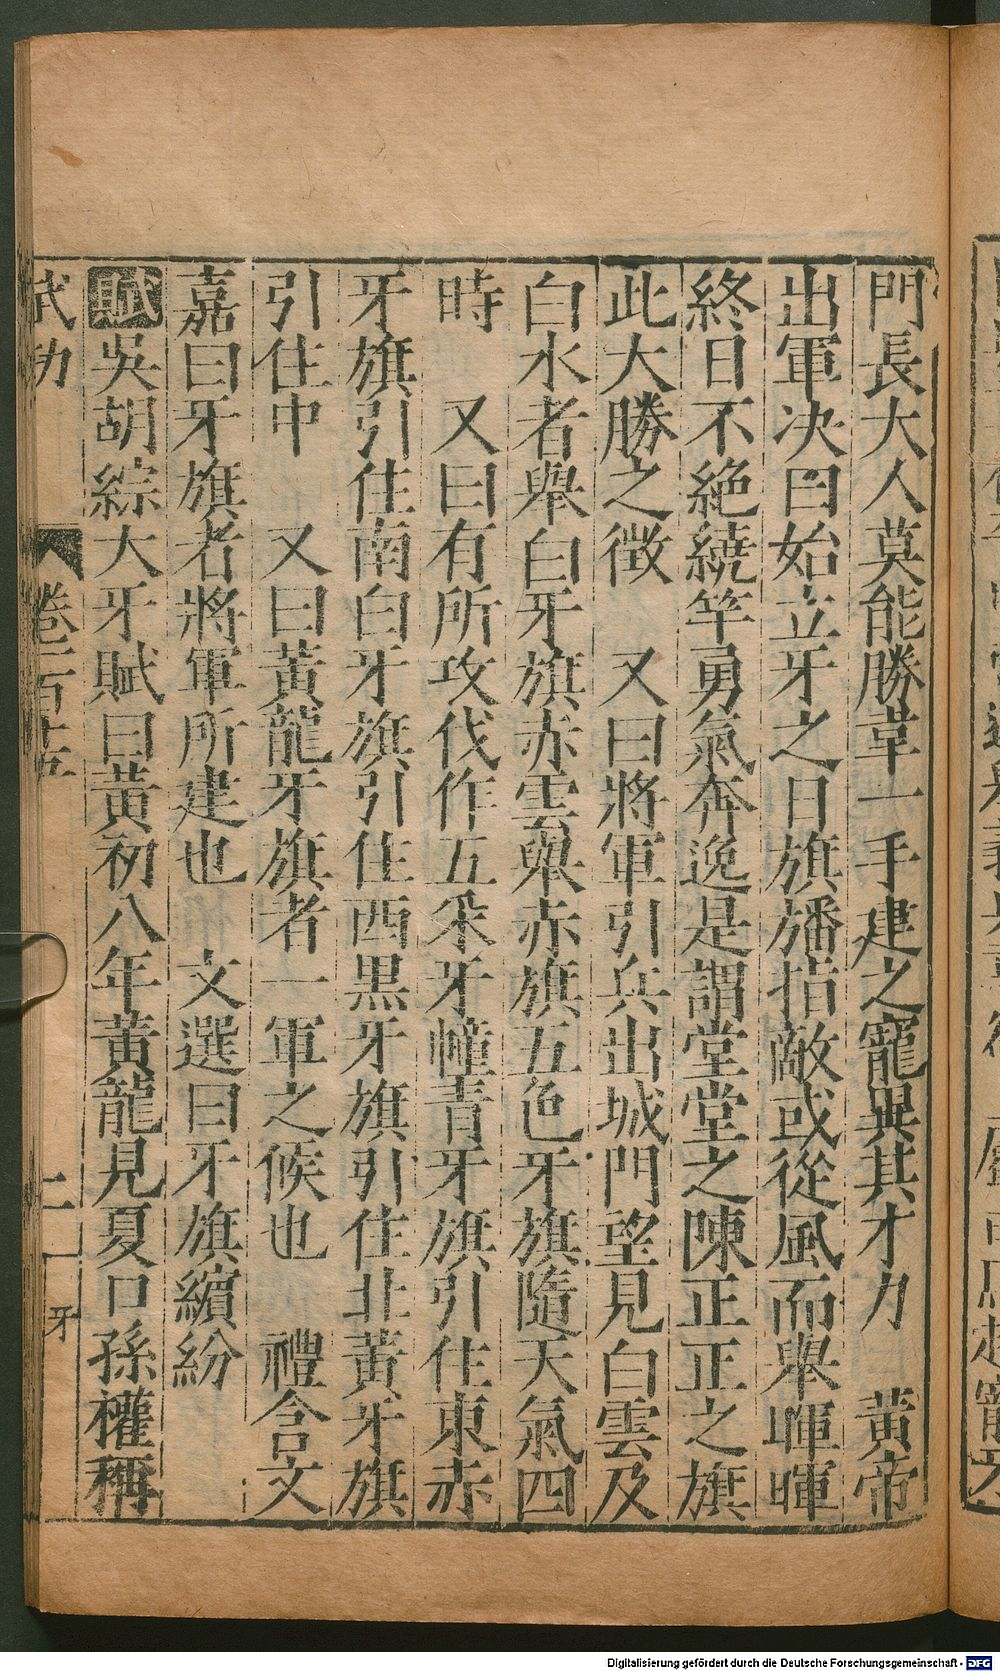 門長大人莫能勝韋一手建之寵異其才力　黃帝
出軍决曰始立牙之日旗旛指敵或從風而舉暉暉
終日不絶繞竿勇氣奔逸是謂堂堂之陳正正之旗
此大勝之徴　又曰將軍引兵出城門望見白雲及
白水者舉白牙旗赤雲舉赤旗五色牙旗隨天氣四
時　又曰有所攻伐作五采牙幢青牙旗引住東赤
牙旗引住南白牙旗引住西黒牙旗引住北黃牙旗
引住中　又曰黃龍牙旗者一軍之候也　禮含文
嘉曰牙旗者將軍所建也　文選曰牙旗繽紛
賦吳胡綜大牙賦曰黃初八年黃龍見夏口孫權稱
武功　卷二百十五　二　牙
Digitalisierung gefördert durch die Deutsche Forschungsgemeinschaft - DFG